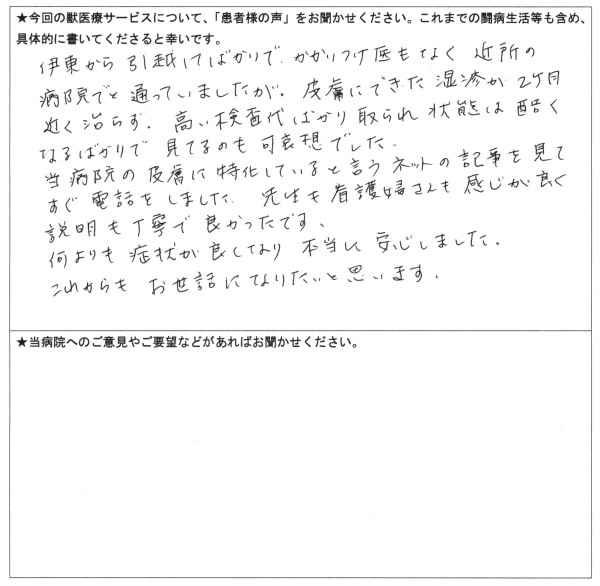 ★今回の獣医療サービスについて、「患者様の声」をお聞かせください。これまでの闘病生活等も含め、
具体的に書いてくださると幸いです。
伊東から引越してばかりで、かかりつけ医もなく 近所の
病院でと通っていましたが。皮膚にできた湿疹が2ケ月
近く治らず、高い検査代ばかり取られ 状態は酷く
なるばかりで 見てるのも可哀想でした。
当病院の皮膚に特化していると言うネットの記事を見て
すぐ電話をしました。先生も看護婦さんも感じが良く
説明も丁寧で良かったです、
何よりも症状が良くなり 本当に安心しました。
これからも お世話になりたいと思います。
★当病院へのご意見やご要望などがあればお聞かせください。